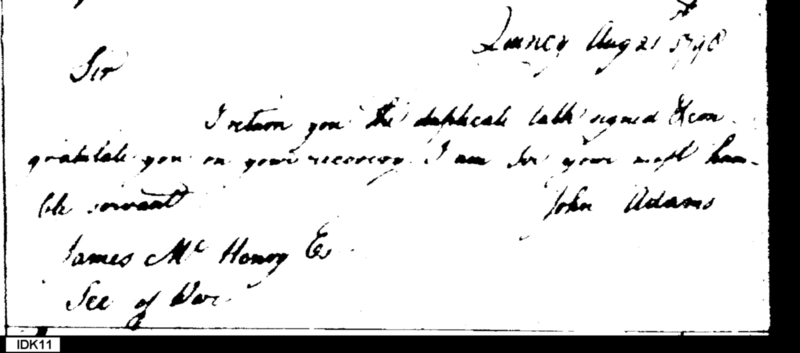 Quincy Aug 21st 1798
Sir
I return you the duplicate talk signed & con-
gratulate you on your recovery I am Sir your most hum-
ble servant
John Adams
James Mc Henry E
Sec of War
IDK11